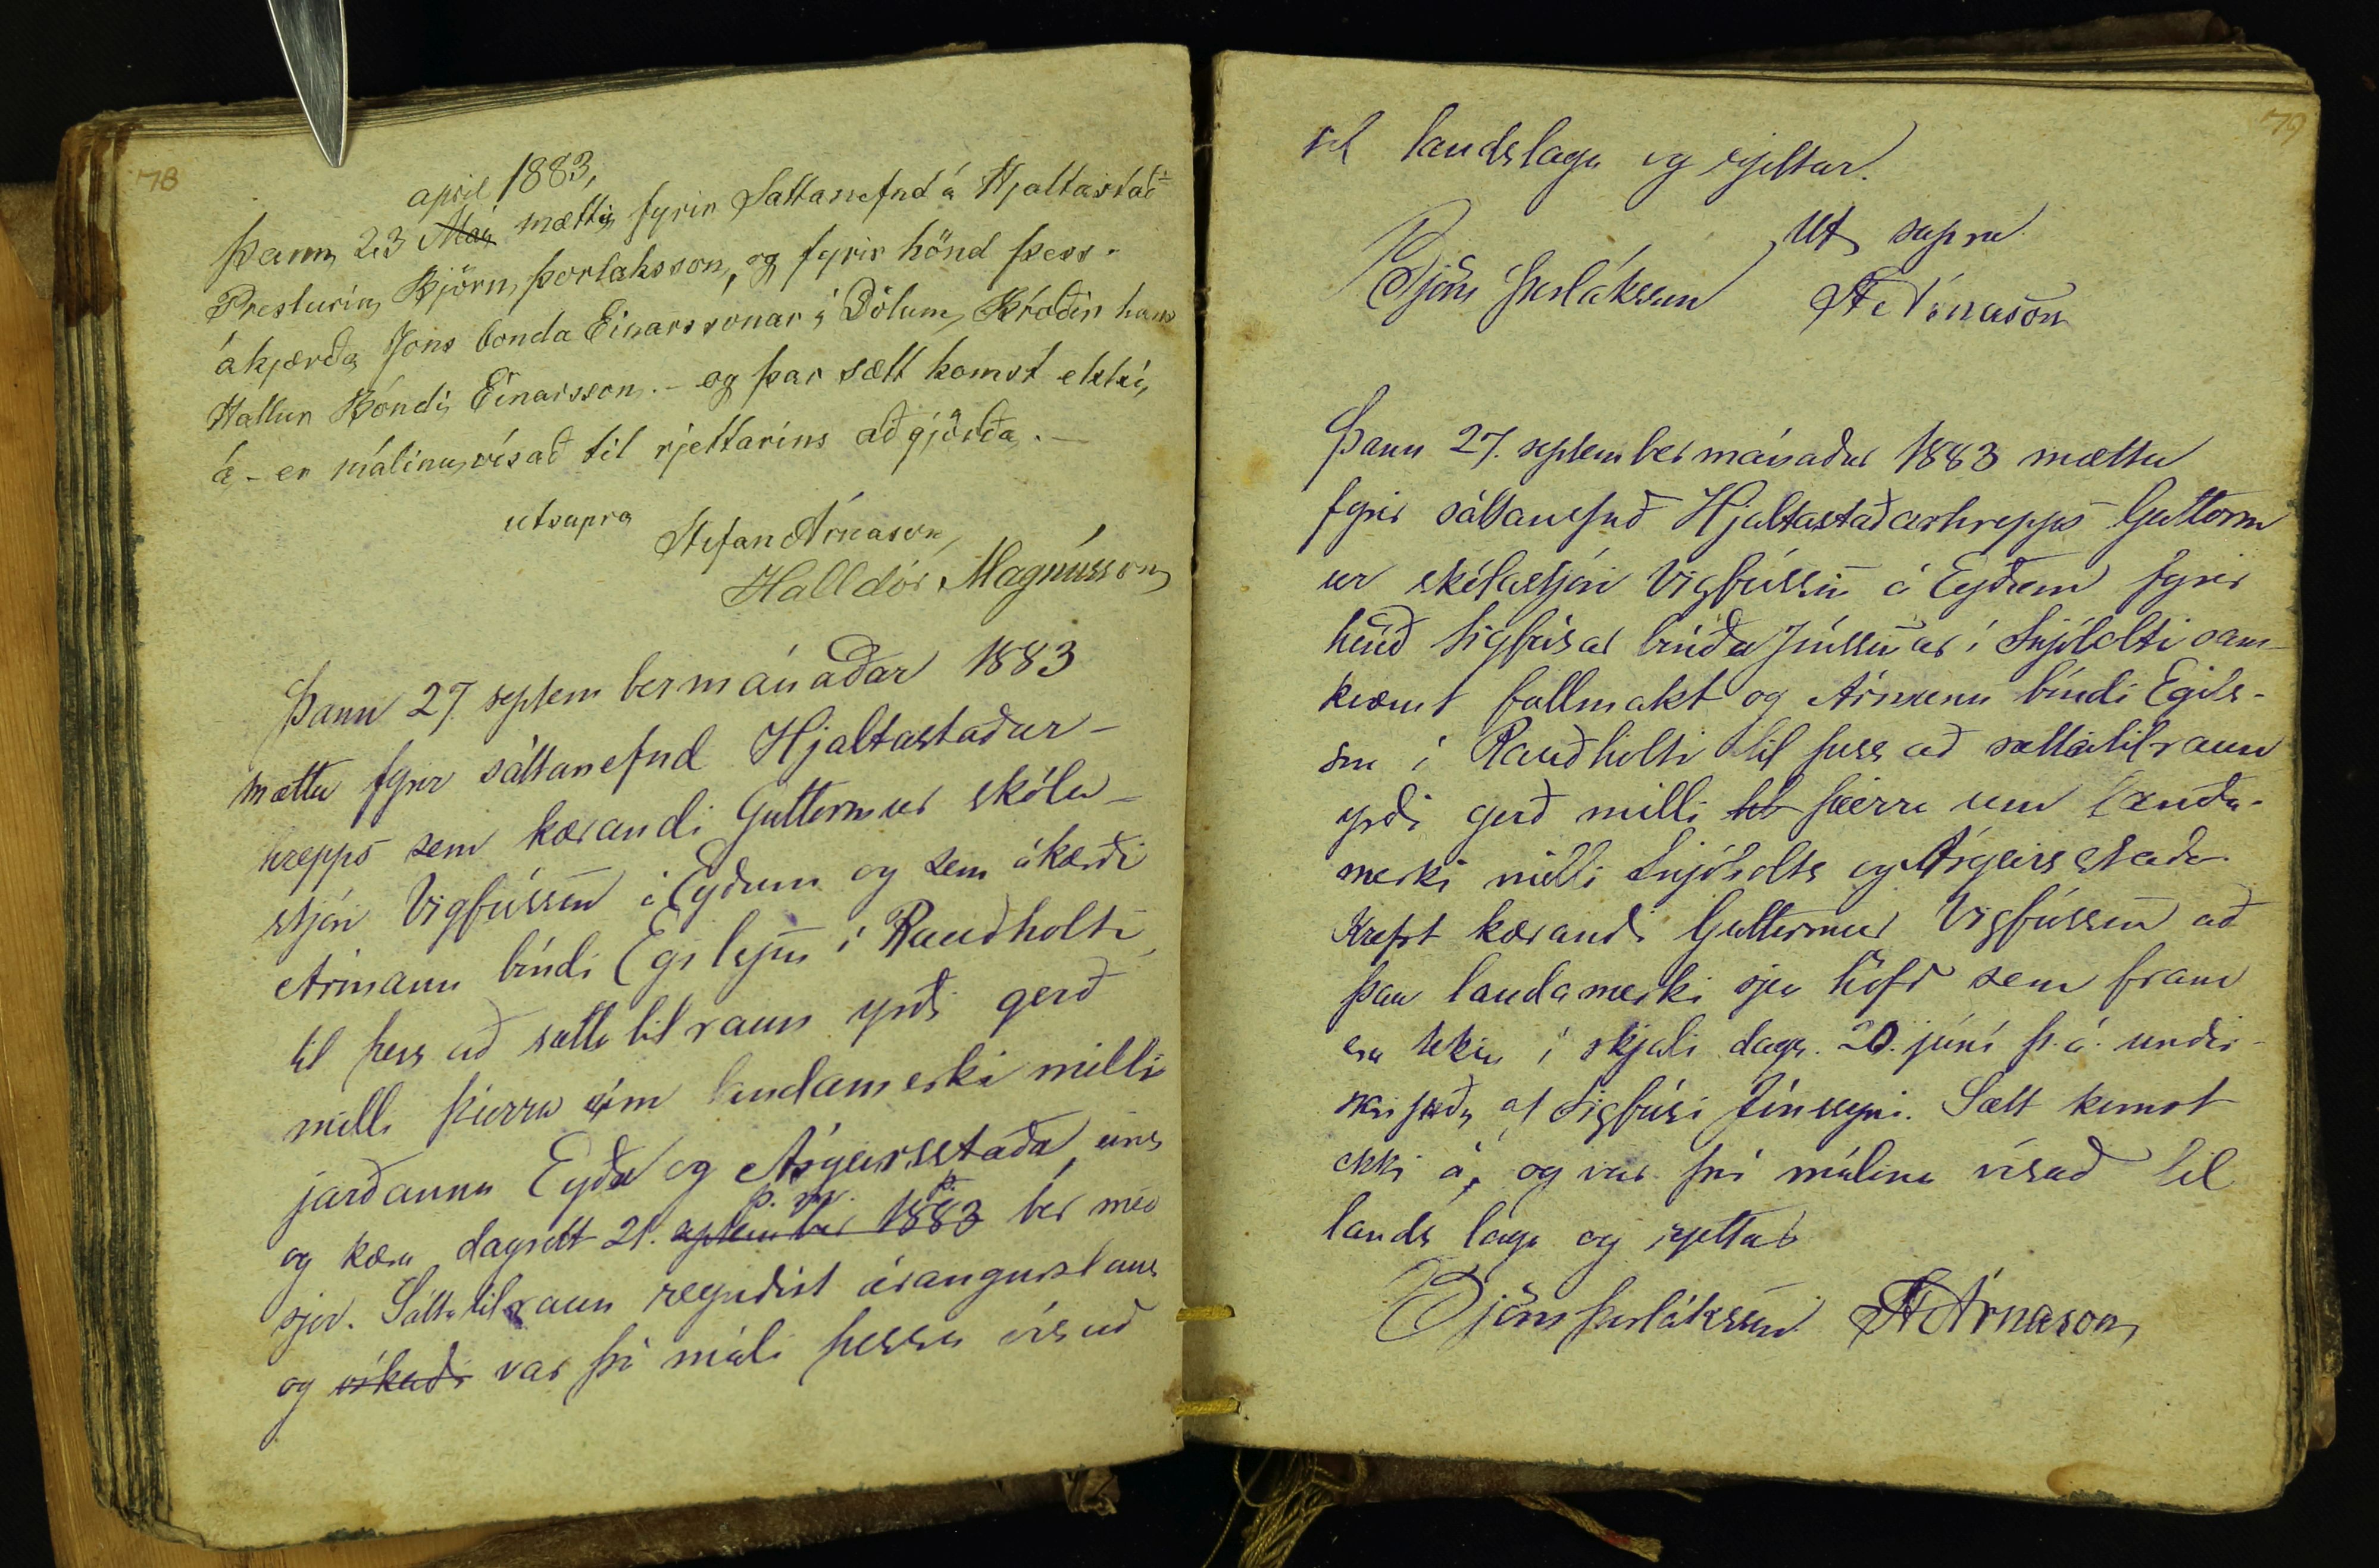 78
april 1883,
Þann 23 Mai mættu fyrir Sattanefnd á Hjaltastað
Presturin Björn Þorlaksson, og fyrir hönd þess
ákjærða Jons bonda Einarssonar á Dölum, Bróðir hans
Hallur Bóndi Einarsson. - og þar sætt komst ekki,
á - er málinu vísað til rjettarins aðgjörða. -
utsupra
Stefan Árnason
Halldór Magnússon
Þann 27. septembermánaðar 1883
mættu fyrir sáttanefnd Hjaltastaðar-
hrepps sem kærandi Guttormur skóla-
stjóri Vigfússon á Eyðum og sem ákærði
Ármann bóndi Egilsson í Rauðholti
til þess að sáttatilraun yrði gerð
milli þeirra um landamerki milli
jarðanna Eyða og Ásgeirsstaða, eins
þ. m. þ.
og kæra dagsett 21. september 1883 ber með
sjer. Sáttatilraun reyndist árangurslaus
og var því máli þessu vísað
79
til landslaga og rjettar.
Ut supra
Björn Þorláksson St Árnason
Þann 27. septembermánaðar 1883 mættu
fyrir sáttanefnd Hjaltastaðarhrepps Guttorm
ur skólastjóri Vigfússon á Eyðum fyrir
hönd Sigfúsar bónda Jónssonar í Snjóholti sam-
kvæmt fullmakt og Ármann bóndi Egils-
son í Rauðholti til þess að sáttatilraun
yrði gerð milli þeirra um landa-
merki milli Snjóholts og Ásgeirsstaða.
Krefst kærandi Guttormur Vigfússon að
þau landamerki sjeu höfð sem fram
eru tekin í skjali dags. 20. júní þ. á. undir-
skrifuðu af Sigfúsi Jónssyni. Sætt komst
ekki á, og var því málinu vísað til
lands laga og rjettar
Björn Þorláksson St Árnason